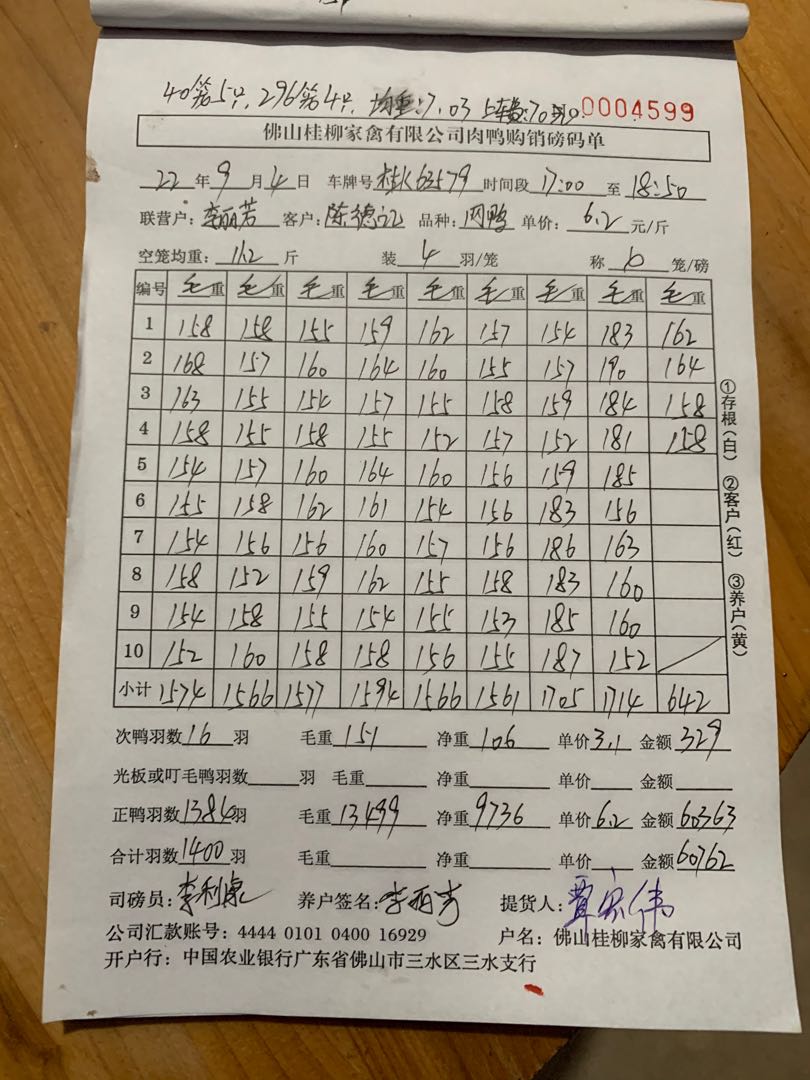 40第5只,296第4只 均重:7.03 上车数:70
0004599
佛山桂柳家禽有限公司肉鸭购销磅码单
22年9月4日 车牌号 桂K63579 时间段17:00至18:50
联营户:李丽芳 客户:陈德记 品种: 单价:6.2元/斤
空笼均重:11.2斤 装4羽/笼 称6笼/磅
编号 毛重 毛重 毛重 毛重 毛重 毛重 毛重 毛重 毛重
1 158 158 155 159 162 157 154 183 162
2 168 157 160 164 160 155 157 190 164
3 163 155 154 157 155 158 159 184 158
4 158 155 158 155 152 157 152 181 158
5 154 157 160 164 160 156 159 185
6 155 158 162 161 154 156 183 156
7 154 156 156 160 157 156 186 163
8 158 152 159 162 155 158 183 160
9 154 158 155 154 155 153 185 160
10 152 160 158 158 156 155 187 152
小计 1574 1566 1577 1594 1566 1561 1705 1714 642
①存根(白) ②客户(红) ③养户(黄)
次鸭羽数16羽 毛重151 净重106 单价3.1 金额329
光板或叮毛鸭羽数 羽 毛重 净重 单价 金额
正鸭羽数1384羽 毛重13499 净重9736 单价6.2 金额60363
合计羽数1400羽 毛重 净重 单价 金额60762
司磅员:李利康 养户签名:李丽芳 提货人:覃家伟
公司汇款账号:4444 0101 0400 16929 户名:佛山桂柳家禽有限公司
开户行:中国农业银行广东省佛山市三水区三水支行